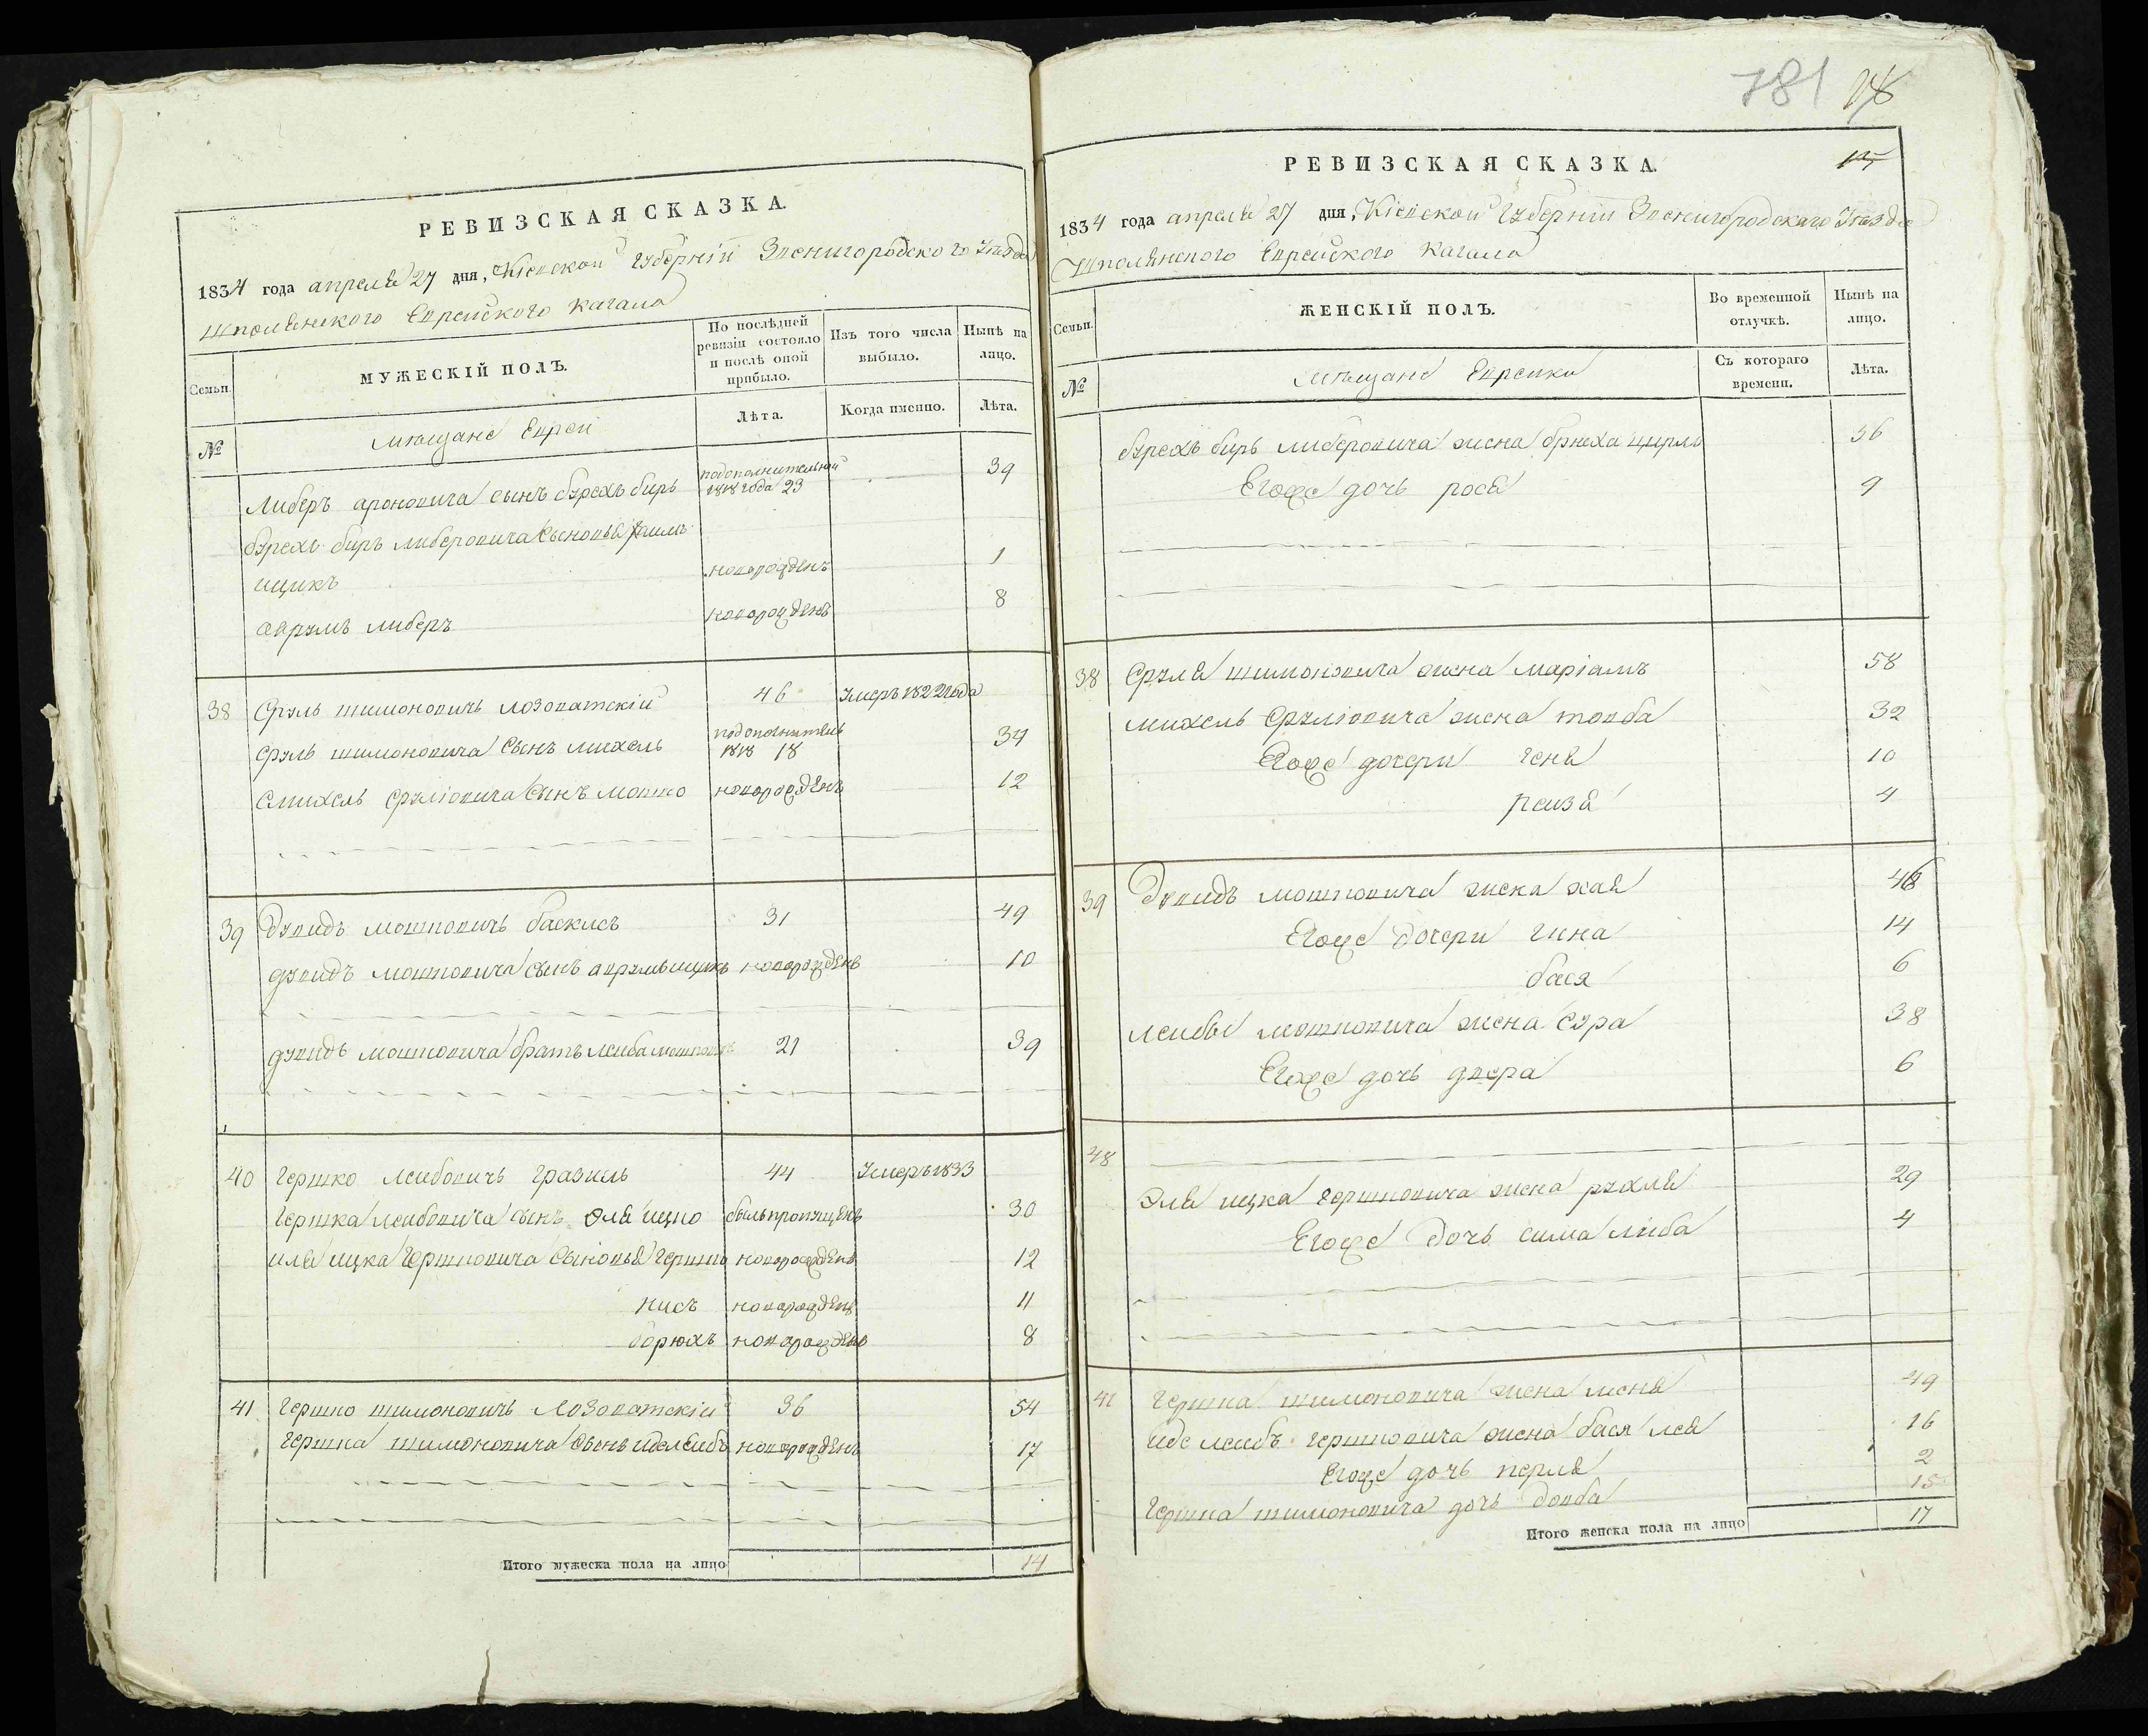 РЕВИЗСКАЯ СКАЗКА.
1834 года апреля 27 дня, Кіевской Губерніи Звенигородского Уезда
Шполянского Еврейского Кагала
Семьи.
МУЖЕСКІЙ ПОЛЪ.
По послѣдней ревизіи состояло и послѣ оной прибыло.
Изъ того числа выбыло.
Нынѣ на лицо.
№
мещане Евреи
Лѣта.
Когда именно.
Лѣта.
Либеръ ароновича сынъ бурехъ беръ 1818 года 23 39
бурехъ беръ либеровича сыновья хаимъ
ицикъ новорожденъ 1
аврумъ либеръ новорожденъ 8
38 Сруль шимоновичъ лозоватскій 46 Умеръ 1822 года
сруль шимоновича сынъ михель 1818 18 34
михель сруліовича сынъ мошко новорожденъ 12
39 Дувидъ мошковичъ баскисъ 31 49
дувидъ мошковича сынъ аврумъ ицикъ новорожденъ 10
дувидъ мошковича братъ лейба мошковичъ 21 39
40 Гершко лейбовичъ гразиль 44 Умеръ 1833
гершка лейбовича сынъ эля ицко былъ пропущенъ 30
иля ицка гершковича сыновья гершко новорожденъ 12
нисъ новорожденъ 11
борюхъ новорожденъ 8
41 Гершко шимоновичъ Лозоватскій 36 54
гершка шимоновича сынъ иделейбъ новорожденъ 17
Итого мужеска пола на лицо 14
781
РЕВИЗСКАЯ СКАЗКА.
1834 года апреля 27 дня, Кіевской Губерніи Звенигородскаго Уезда
Шполянского Еврейского Кагала
Семьи.
ЖЕНСКІЙ ПОЛЪ.
Во временной отлучкѣ.
Нынѣ на лицо.
№
мещане Еврейки
Съ котораго времени.
Лѣта.
бурехъ беръ либеровича жена бриха цирль 36
Егоже дочь рося 9
38 Сруля шимоновича жена маріамъ 58
михель сруліовича жена товба 32
Егоже дочери геня 10
рейзя 4
39 Дувидъ мошковича жена хая 48
Егоже дочери гина 14
бася 6
лейбы мошковича жена сура 38
Егоже дочь двера 6
48
Эля ицка гершковича жена рухля 29
Егоже дочь сима либа 4
41 Гершка шимоновича жена меня 49
иде лейбъ гершковича жена бася лея 16
Егоже дочь перля 2
Гершка шимоновича дочь довба 15
Итого женска пола на лицо 17